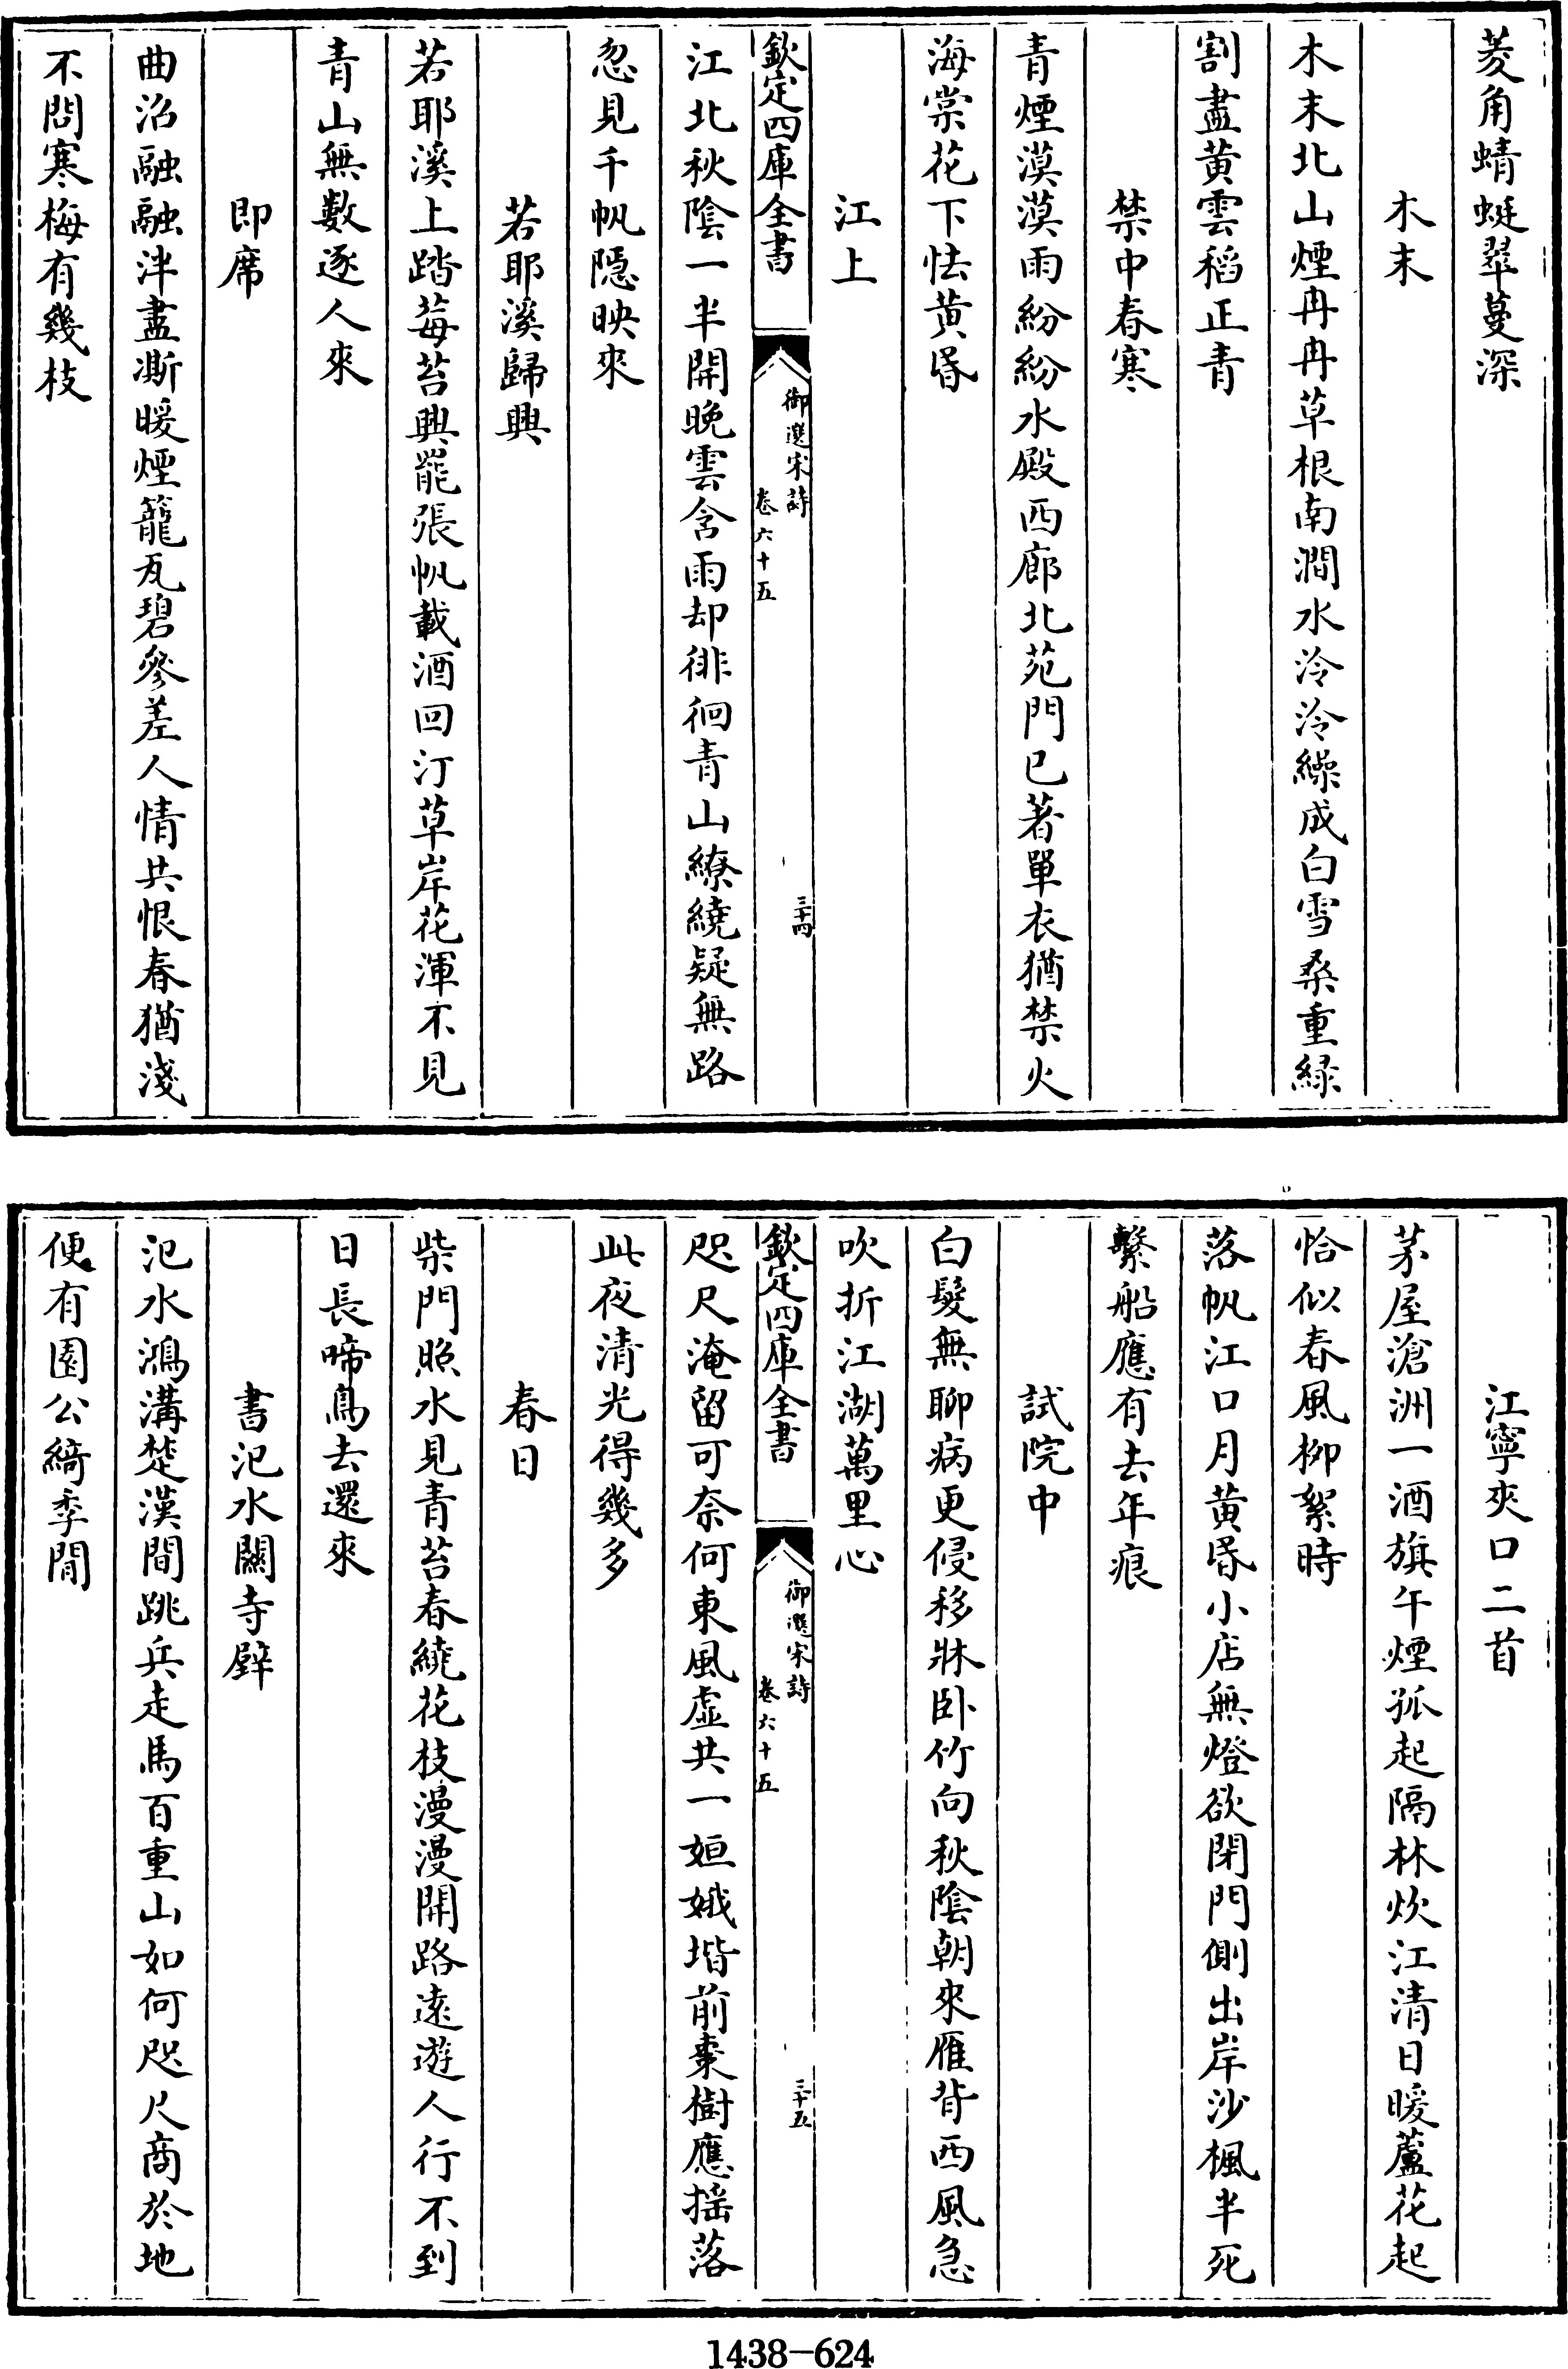 菱角蜻蜓翠蔓深
木末
木末北山煙冉冉草根南澗水泠泠繰成白雪桑重緑
割盡黄雲稻正青
禁中春寒
青煙漠漠雨紛紛水殿西廊北苑門已著單衣猶禁火
海棠花下怯黄昬
江上
欽定四庫全書
御選宋詩
卷六十五
三十四
江北秋陰一半開晚雲含雨却徘徊青山繚繞疑無路
忽見千帆隠映來
若耶溪歸興
若耶溪上踏莓苔興罷張帆載酒回汀草岸花渾不見
青山無數逐人來
即席
曲沼融融泮盡澌暖煙籠瓦碧參差人情共恨春猶淺
不問寒梅有幾枝
江寧夾口二首
茅屋滄洲一酒旗午煙孤起隔林炊江清日暖蘆花起
恰似春風柳絮時
落帆江口月黄昬小店無燈欲閉門側出岸沙楓半死
繫船應有去年痕
試院中
白髮無聊病更侵移牀卧竹向秋陰朝來雁背西風急
吹折江湖萬里心
欽定四庫全書
御選宋詩
卷六十五
三十五
咫尺淹留可奈何東風虛共一姮娥堦前棗樹應揺落
此夜清光得幾多
春日
柴門照水見青苔春繞花枝漫漫開路逺遊人行不到
日長啼鳥去還來
書汜水關寺壁
汜水鴻溝楚漢間跳兵走馬百重山如何咫尺商於地
便有園公綺季閒
1438-624